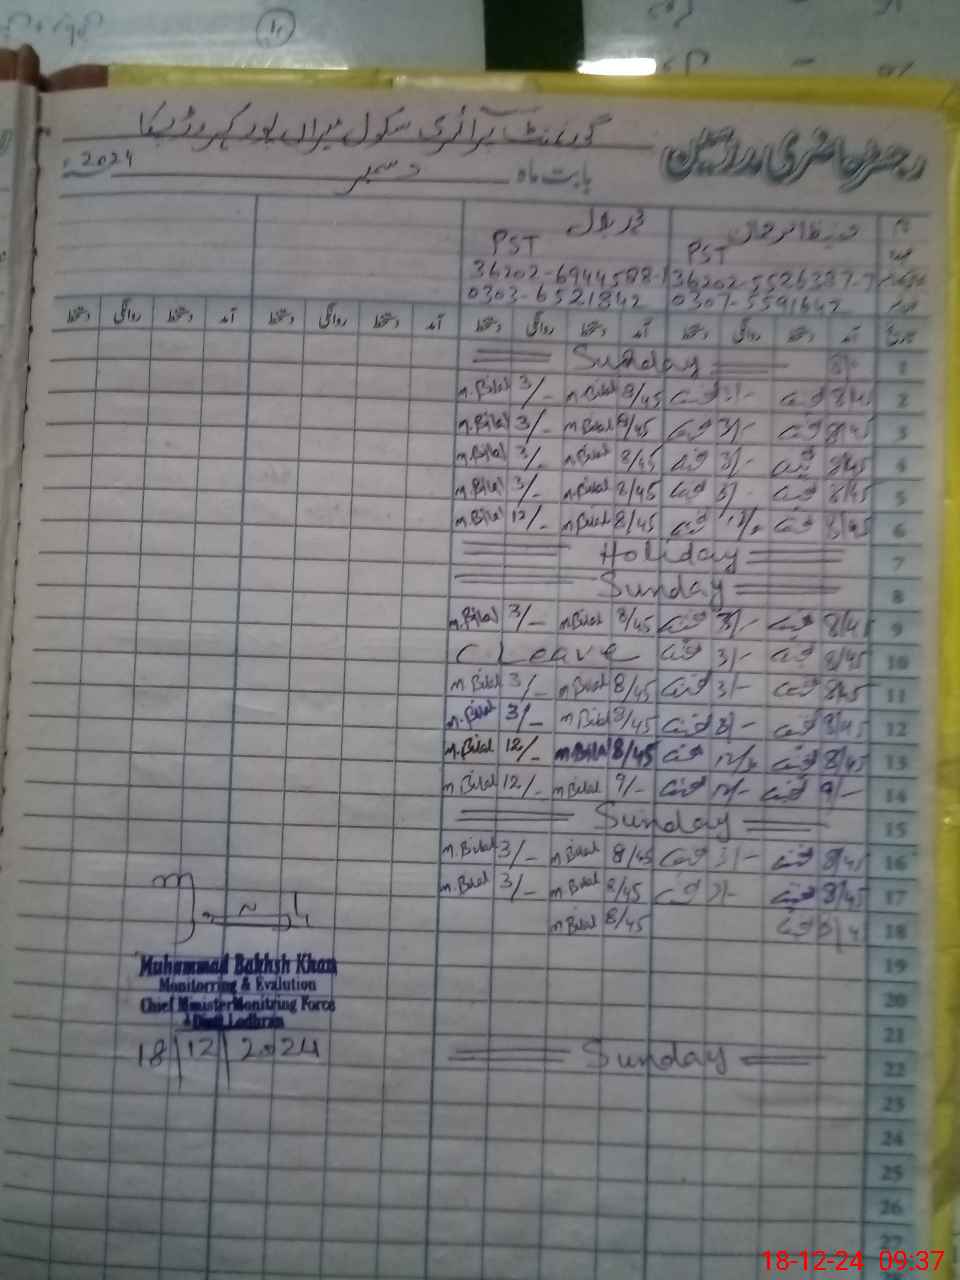 گورنمنٹ پرائمری سکول میراں پور کہروڑ پکا
رجسٹر حاضری مدرسین
بابت ماہ دسمبر 2024ء
محمد بلال
PST PST
36202-6944588-1 36202-5526387-7
0303-6521842 0307-5591642
تاریخ آمد دستخط روانگی دستخط آمد دستخط روانگی دستخط آمد دستخط روانگی دستخط آمد دستخط روانگی دستخط
Sunday 1
m.Bilal 3/- m.Bilal 8/45 3/- 8/45 2
m.Bilal 3/- m.Bilal 8/45 3/- 8/45 3
m.Bilal 3/- m.Bilal 8/45 3/- 8/45 4
m.Bilal 3/- m.Bilal 8/45 3/- 8/45 5
m.Bilal 12/- m.Bilal 8/45 8/45 6
Holiday 7
Sunday 8
m.Bilal 3/- m.Bilal 8/45 3/- 8/45 9
C Leave 3/- 8/45 10
m.Bilal 3/- m.Bilal 8/45 3/- 8/45 11
m.Bilal 3/- m.Bilal 8/45 3/- 8/45 12
m.Bilal 12/- m.Bilal 8/45 8/45 13
m.Bilal 12/- m.Bilal 9/- 12/- 9/- 14
Sunday 15
m.Bilal 3/- m.Bilal 8/45 3/- 8/45 16
m.Bilal 3/- m.Bilal 8/45 3/- 8/45 17
m.Bilal 8/45 18
19
20
21
Sunday 22
23
24
25
26
27
Muhammad Bakhsh Khan
Monitorring & Evalution
Chief Minister Monitring Force
Distt Lodhran
18/12/2024
18-12-24 09:37